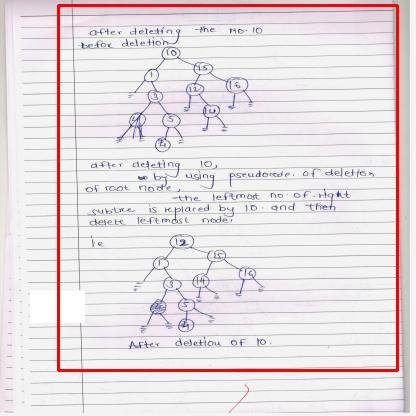 after deleting the no. 10
befor deletion
10
1 15
3 12 16
5 14
4
after deleting 10,
by using pseudocode of deletion
of root node,
the leftmost no. of right
subtree is replaced by 10. and then
delete leftmost node.
ie
12
1 15
3 14 16
5
4
After deletion of 10.